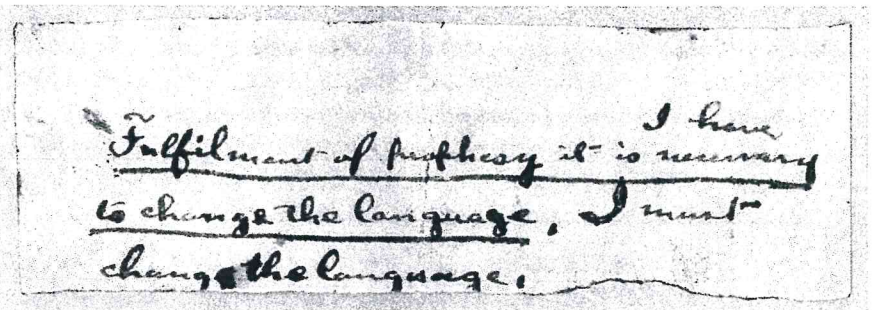 I have
Fulfilment of prophesy it is necessary
to change the language, I must
change the language.